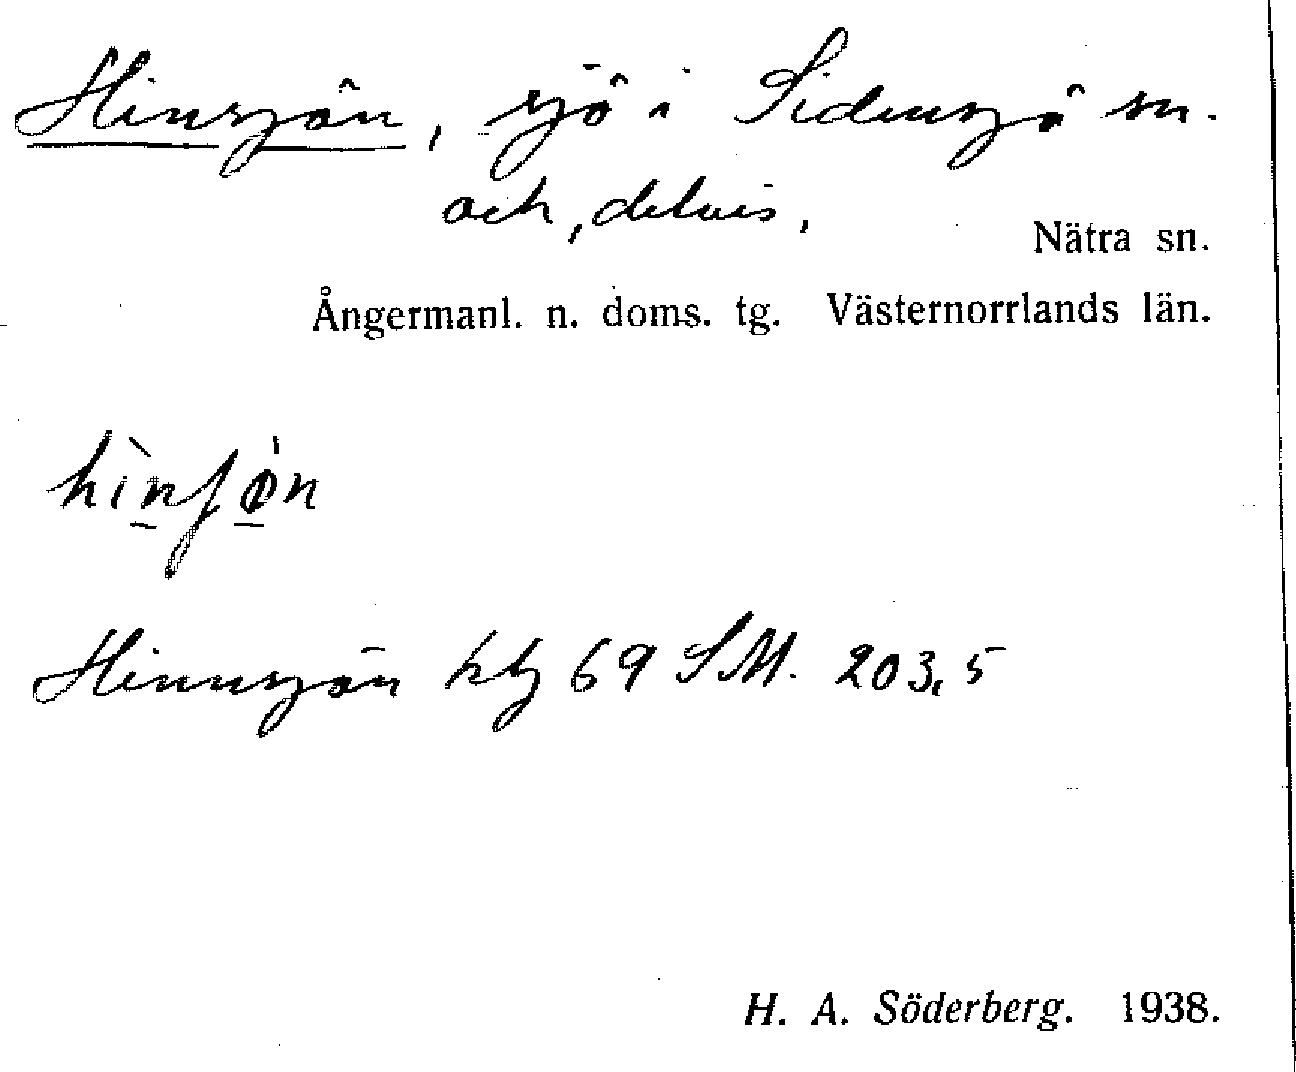 Hinsjön, sjö i Sidensjö sn.
och, delvis,
Nätra sn.
Ångermanl. n. doms. tg. Västernorrlands län.
Hinnsjön ktg 69 SM. 203,5
H. A. Söderberg. 1938.